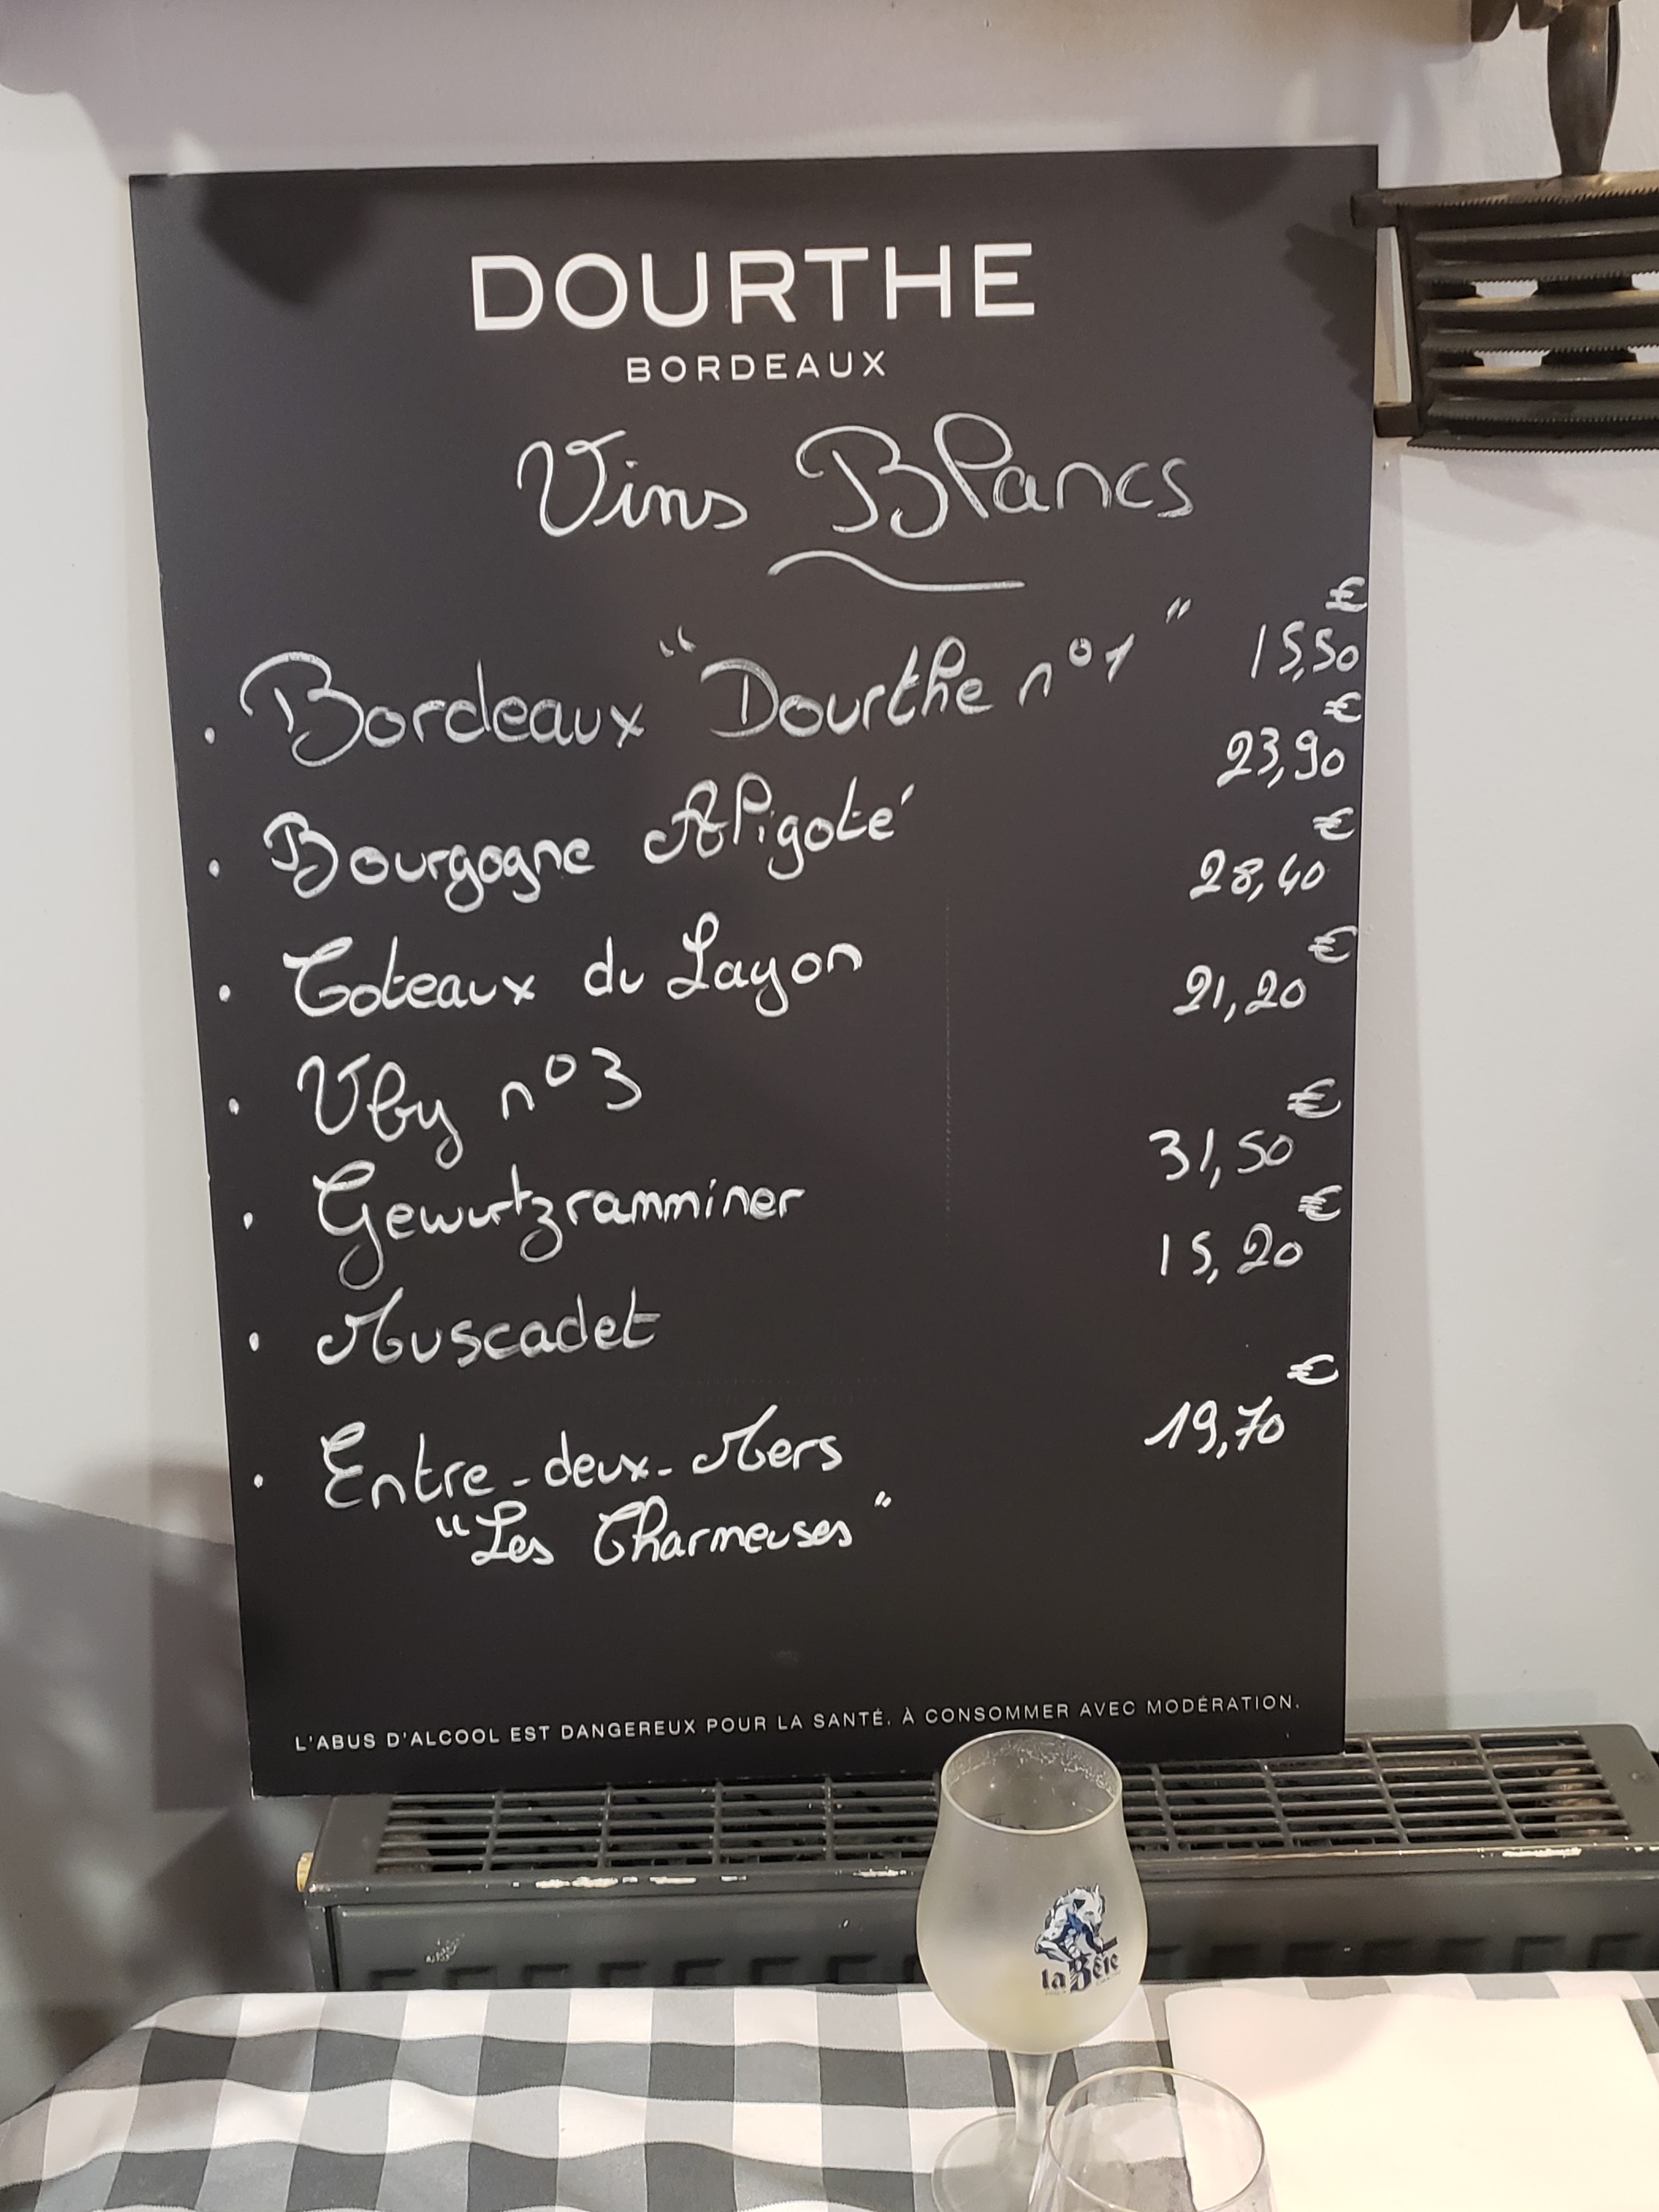 DOURTHE
BORDEAUX
Vins Blancs
• Bordeaux "Dourthe n°1" 15,50 €
• Bourgogne Aligoté 23,90 €
• Coteaux du Layon 28,40 €
• Uby n°3 21,20 €
• Gewurtzramminer 31,50 €
• Muscadet 15,20 €
• Entre-deux-Mers 19,70 €
"Les Charmeuses"
L'ABUS D'ALCOOL EST DANGEREUX POUR LA SANTÉ. À CONSOMMER AVEC MODÉRATION.
la Bête